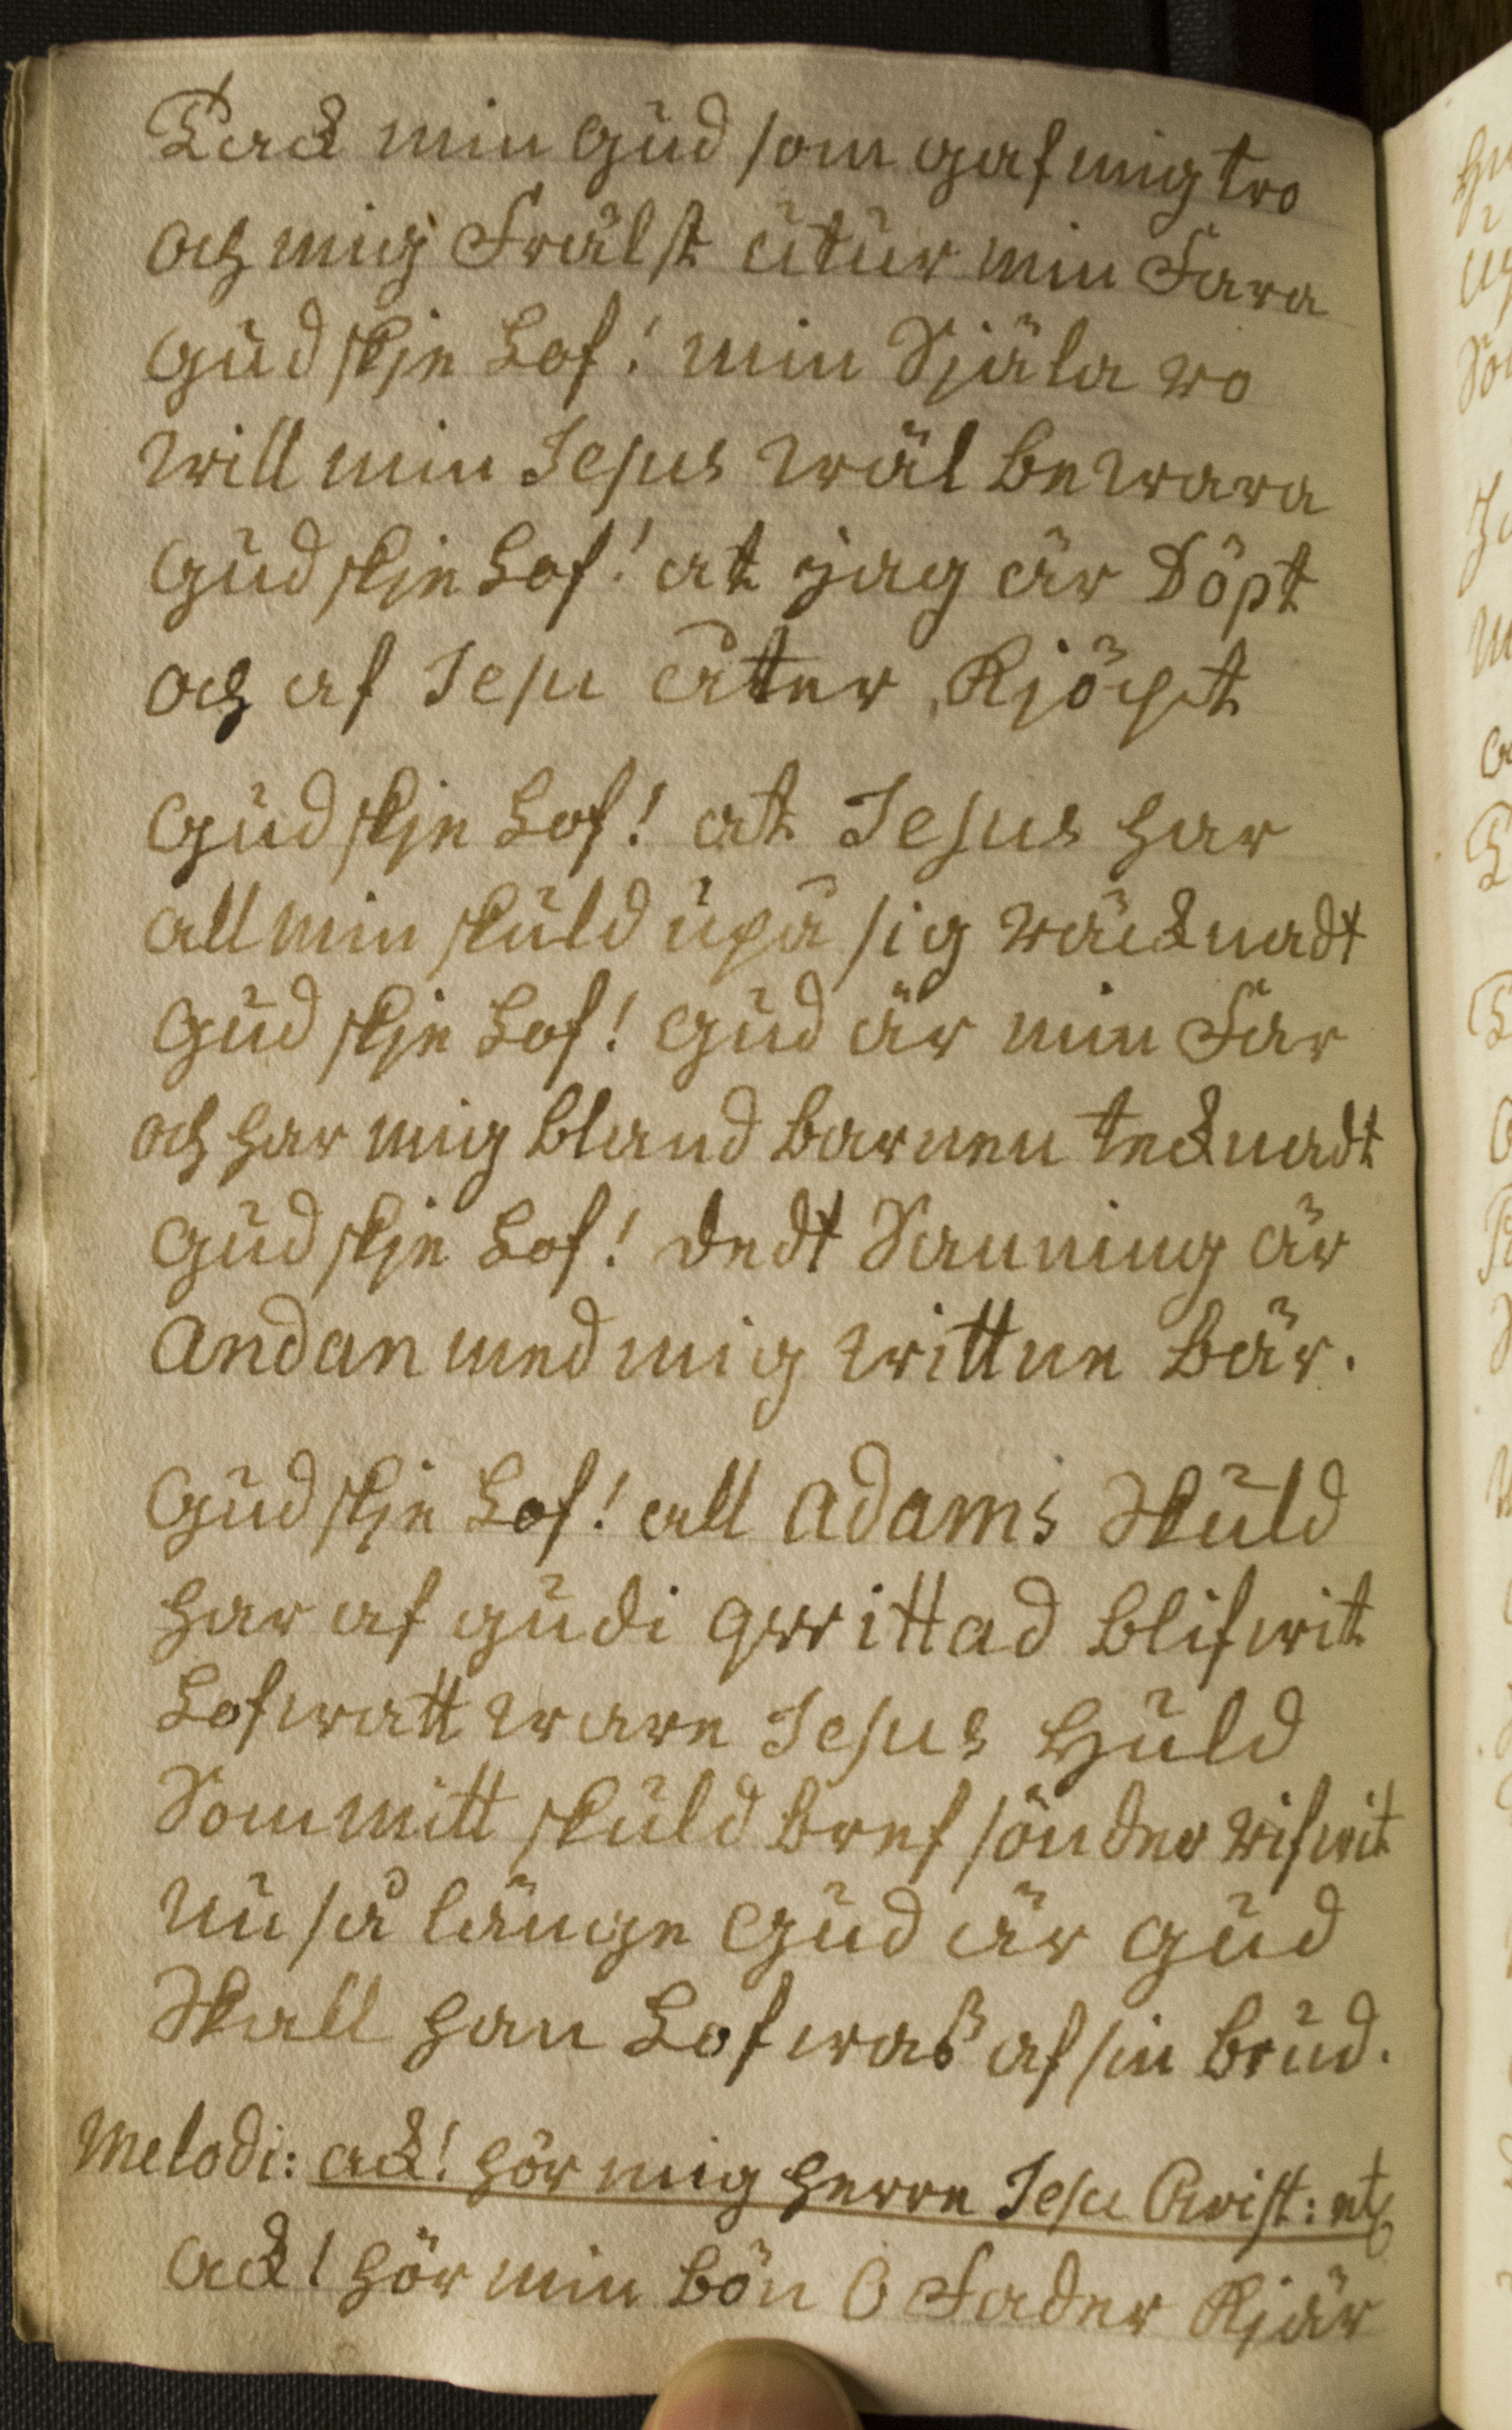 Tack min Gud som gaf mig tro
och mig Frälst utur min Fara
Gud skje Lof! min Själa ro
will min Jesus wäl bewara
Gud skje Lof! at jag är Döpt
och af Jesu åter Kjöpt
Gud skje Lof! at Jesus har
all min skuld upå sig räcknadt
Gud skje Lof! Gud är min Far
och har mig bland barnen tecknadt
Gud skje Lof! dedt Sanning är
andan med mig wittne bär.
Gud skje Lof! all adams Skuld
har af gudi qwittad blifwit
Lofwatt ware Jesus Huld
Som mitt skuld bref sönder rifwit
Nu så länge Gud är Gud
Skall han Lofwas af sin brud.
Melodi: ack! hör mig Herre Jesu Christ: etc
Ack! hör min bön O Fader Kjär